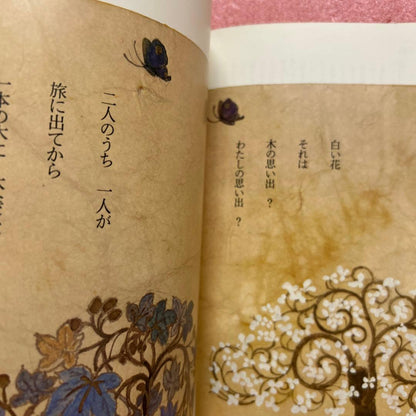 白い花
それは
木の思い出 ?
わたしの思い出 ?
二人のうち 一人が
旅に出てから
一本の木に